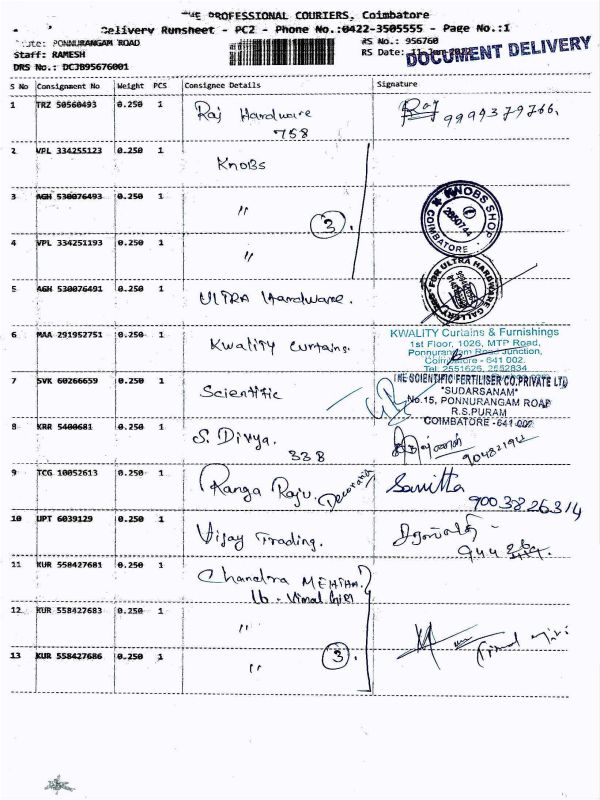 THE PROFESSIONAL COURIERS, Coimbatore
Delivery Runsheet - PC2 - Phone No.:0422-3505555 - Page No.:1
PONNURANGAM ROAD
RS No.: 956760
Staff: RAMESH
RS Date:
DOCUMENT DELIVERY
DRS No.: DCJB95676001
S No Consignment No Weight PCS Consignee Details Signature
1 TRZ 50560493 0.250 1 Raj Hardware Raj
758
2 VPL 334255123 0.250 1 Knobs
3 AGH 530076493 0.250 1 "
KNOBS SHOP
2550744
COIMBATORE
3
4 VPL 334251193 0.250 1 "
FOR ULTRA HARDWARE GALLERY
5 AGH 530076491 0.250 1 ULTRA Hardware.
6 MAA 291952751 0.250 1 Kwality Curtains.
KWALITY Curtains & Furnishings
1st Floor, 1026, MTP Road,
Ponnurangam Road Junction,
Coimbatore - 641 002.
Tel: 2551625, 2552834
7 SVK 60266659 0.250 1 Scientific
THE SCIENTIFIC FERTILISER CO.PRIVATE LTD
"SUDARSANAM"
No.15, PONNURANGAM ROAD
R.S.PURAM
COIMBATORE -641 002
8 KRR 5400681 0.250 1 S. Divya.
338
9 TCG 10052613 0.250 1 Ranga Raju. Savitha
9003826314
10 UPT 6039129 0.250 1 Vijay Trading.
11 KUR 558427681 0.250 1 Chandra
12 KUR 558427683 0.250 1 "
13 KUR 558427686 0.250 1 "
3